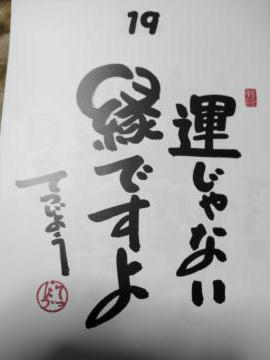 19
運じゃない
縁ですよ
てつじょう